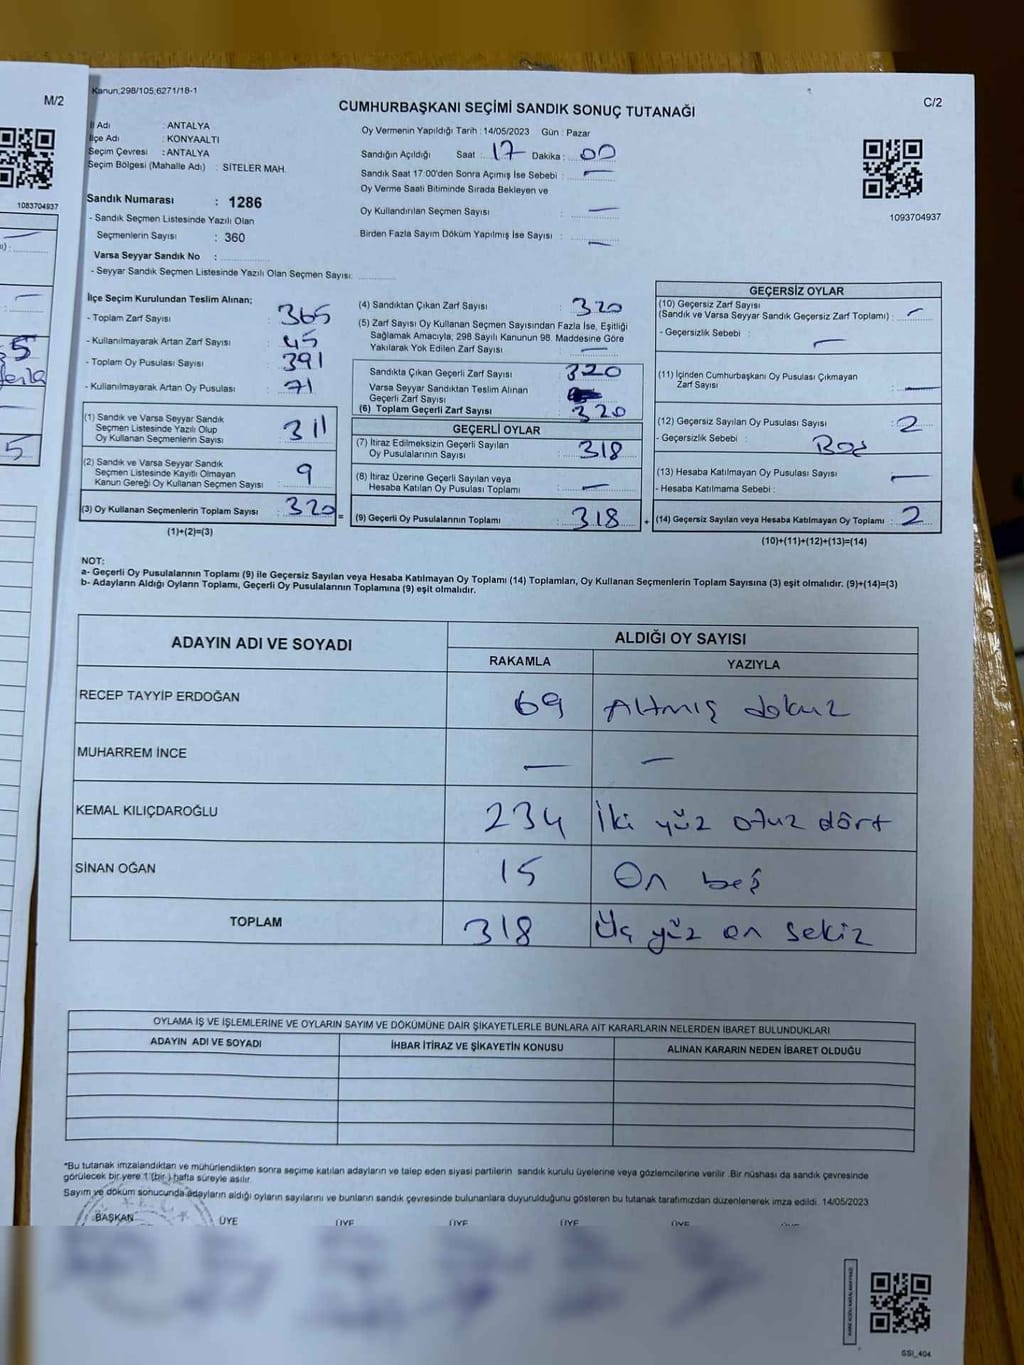 M/2
1083704937
5
5
Kanun;298/105,6271/18-1
C/2
CUMHURBAŞKANI SEÇİMİ SANDIK SONUÇ TUTANAĞI
İl Adı : ANTALYA
İlçe Adı : KONYAALTI
Seçim Çevresi : ANTALYA
Seçim Bölgesi (Mahalle Adı) : SİTELER MAH.
Oy Vermenin Yapıldığı Tarih : 14/05/2023 Gün : Pazar
Sandığın Açıldığı Saat : 17 Dakika : 00
Sandık Saat 17:00'den Sonra Açımış İse Sebebi : —
Oy Verme Saati Bitiminde Sırada Bekleyen ve
Oy Kullandırılan Seçmen Sayısı : —
Birden Fazla Sayım Döküm Yapılmış İse Sayısı : —
1093704937
Sandık Numarası : 1286
- Sandık Seçmen Listesinde Yazılı Olan
Seçmenlerin Sayısı : 360
Varsa Seyyar Sandık No :
- Seyyar Sandık Seçmen Listesinde Yazılı Olan Seçmen Sayısı:
İlçe Seçim Kurulundan Teslim Alınan;
- Toplam Zarf Sayısı : 365
- Kullanılmayarak Artan Zarf Sayısı : 45
- Toplam Oy Pusulası Sayısı : 391
- Kullanılmayarak Artan Oy Pusulası : 71
(1) Sandık ve Varsa Seyyar Sandık
Seçmen Listesinde Yazılı Olup
Oy Kullanan Seçmenlerin Sayısı : 311
(2) Sandık ve Varsa Seyyar Sandık
Seçmen Listesinde Kayıtlı Olmayan
Kanun Gereği Oy Kullanan Seçmen Sayısı : 9
(3) Oy Kullanan Seçmenlerin Toplam Sayısı : 320
(1)+(2)=(3)
(4) Sandıktan Çıkan Zarf Sayısı : 320
(5) Zarf Sayısı Oy Kullanan Seçmen Sayısından Fazla İse, Eşitliği
Sağlamak Amacıyla, 298 Sayılı Kanunun 98. Maddesine Göre
Yakılarak Yok Edilen Zarf Sayısı : —
Sandıkta Çıkan Geçerli Zarf Sayısı : 320
Varsa Seyyar Sandıktan Teslim Alınan
Geçerli Zarf Sayısı :
(6) Toplam Geçerli Zarf Sayısı : 320
GEÇERLİ OYLAR
(7) İtiraz Edilmeksizin Geçerli Sayılan
Oy Pusulalarının Sayısı : 318
(8) İtiraz Üzerine Geçerli Sayılan veya
Hesaba Katılan Oy Pusulası Toplamı : —
= (9) Geçerli Oy Pusulalarının Toplamı : 318 +
GEÇERSİZ OYLAR
(10) Geçersiz Zarf Sayısı
(Sandık ve Varsa Seyyar Sandık Geçersiz Zarf Toplamı) : —
- Geçersizlik Sebebi : —
(11) İçinden Cumhurbaşkanı Oy Pusulası Çıkmayan
Zarf Sayısı : —
(12) Geçersiz Sayılan Oy Pusulası Sayısı : 2
- Geçersizlik Sebebi : Boş
(13) Hesaba Katılmayan Oy Pusulası Sayısı : —
- Hesaba Katılmama Sebebi :
(14) Geçersiz Sayılan veya Hesaba Katılmayan Oy Toplamı : 2
(10)+(11)+(12)+(13)=(14)
NOT:
a- Geçerli Oy Pusulalarının Toplamı (9) ile Geçersiz Sayılan veya Hesaba Katılmayan Oy Toplamı (14) Toplamları, Oy Kullanan Seçmenlerin Toplam Sayısına (3) eşit olmalıdır. (9)+(14)=(3)
b- Adayların Aldığı Oyların Toplamı, Geçerli Oy Pusulalarının Toplamına (9) eşit olmalıdır.
ADAYIN ADI VE SOYADI
ALDIĞI OY SAYISI
RAKAMLA YAZIYLA
RECEP TAYYİP ERDOĞAN 69 Altmış dokuz
MUHARREM İNCE — —
KEMAL KILIÇDAROĞLU 234 İki yüz otuz dört
SİNAN OĞAN 15 On beş
TOPLAM 318 Üç yüz on sekiz
OYLAMA İŞ VE İŞLEMLERİNE VE OYLARIN SAYIM VE DÖKÜMÜNE DAİR ŞİKAYETLERLE BUNLARA AİT KARARLARIN NELERDEN İBARET BULUNDUKLARI
ADAYIN ADI VE SOYADI İHBAR İTİRAZ VE ŞİKAYETİN KONUSU ALINAN KARARIN NEDEN İBARET OLDUĞU
*Bu tutanak imzalandıktan ve mühürlendikten sonra seçime katılan adayların ve talep eden siyasi partilerin sandık kurulu üyelerine veya gözlemcilerine verilir. Bir nüshası da sandık çevresinde
görülecek bir yere 1 (bir ) hafta süreyle asılır.
Sayım ve döküm sonucunda adayların aldığı oyların sayılarını ve bunların sandık çevresinde bulunanlara duyurulduğunu gösteren bu tutanak tarafımızdan düzenlenerek imza edildi. 14/05/2023
BAŞKAN ÜYE ÜYE ÜYE ÜYE ÜYE ÜYE
SSI_404